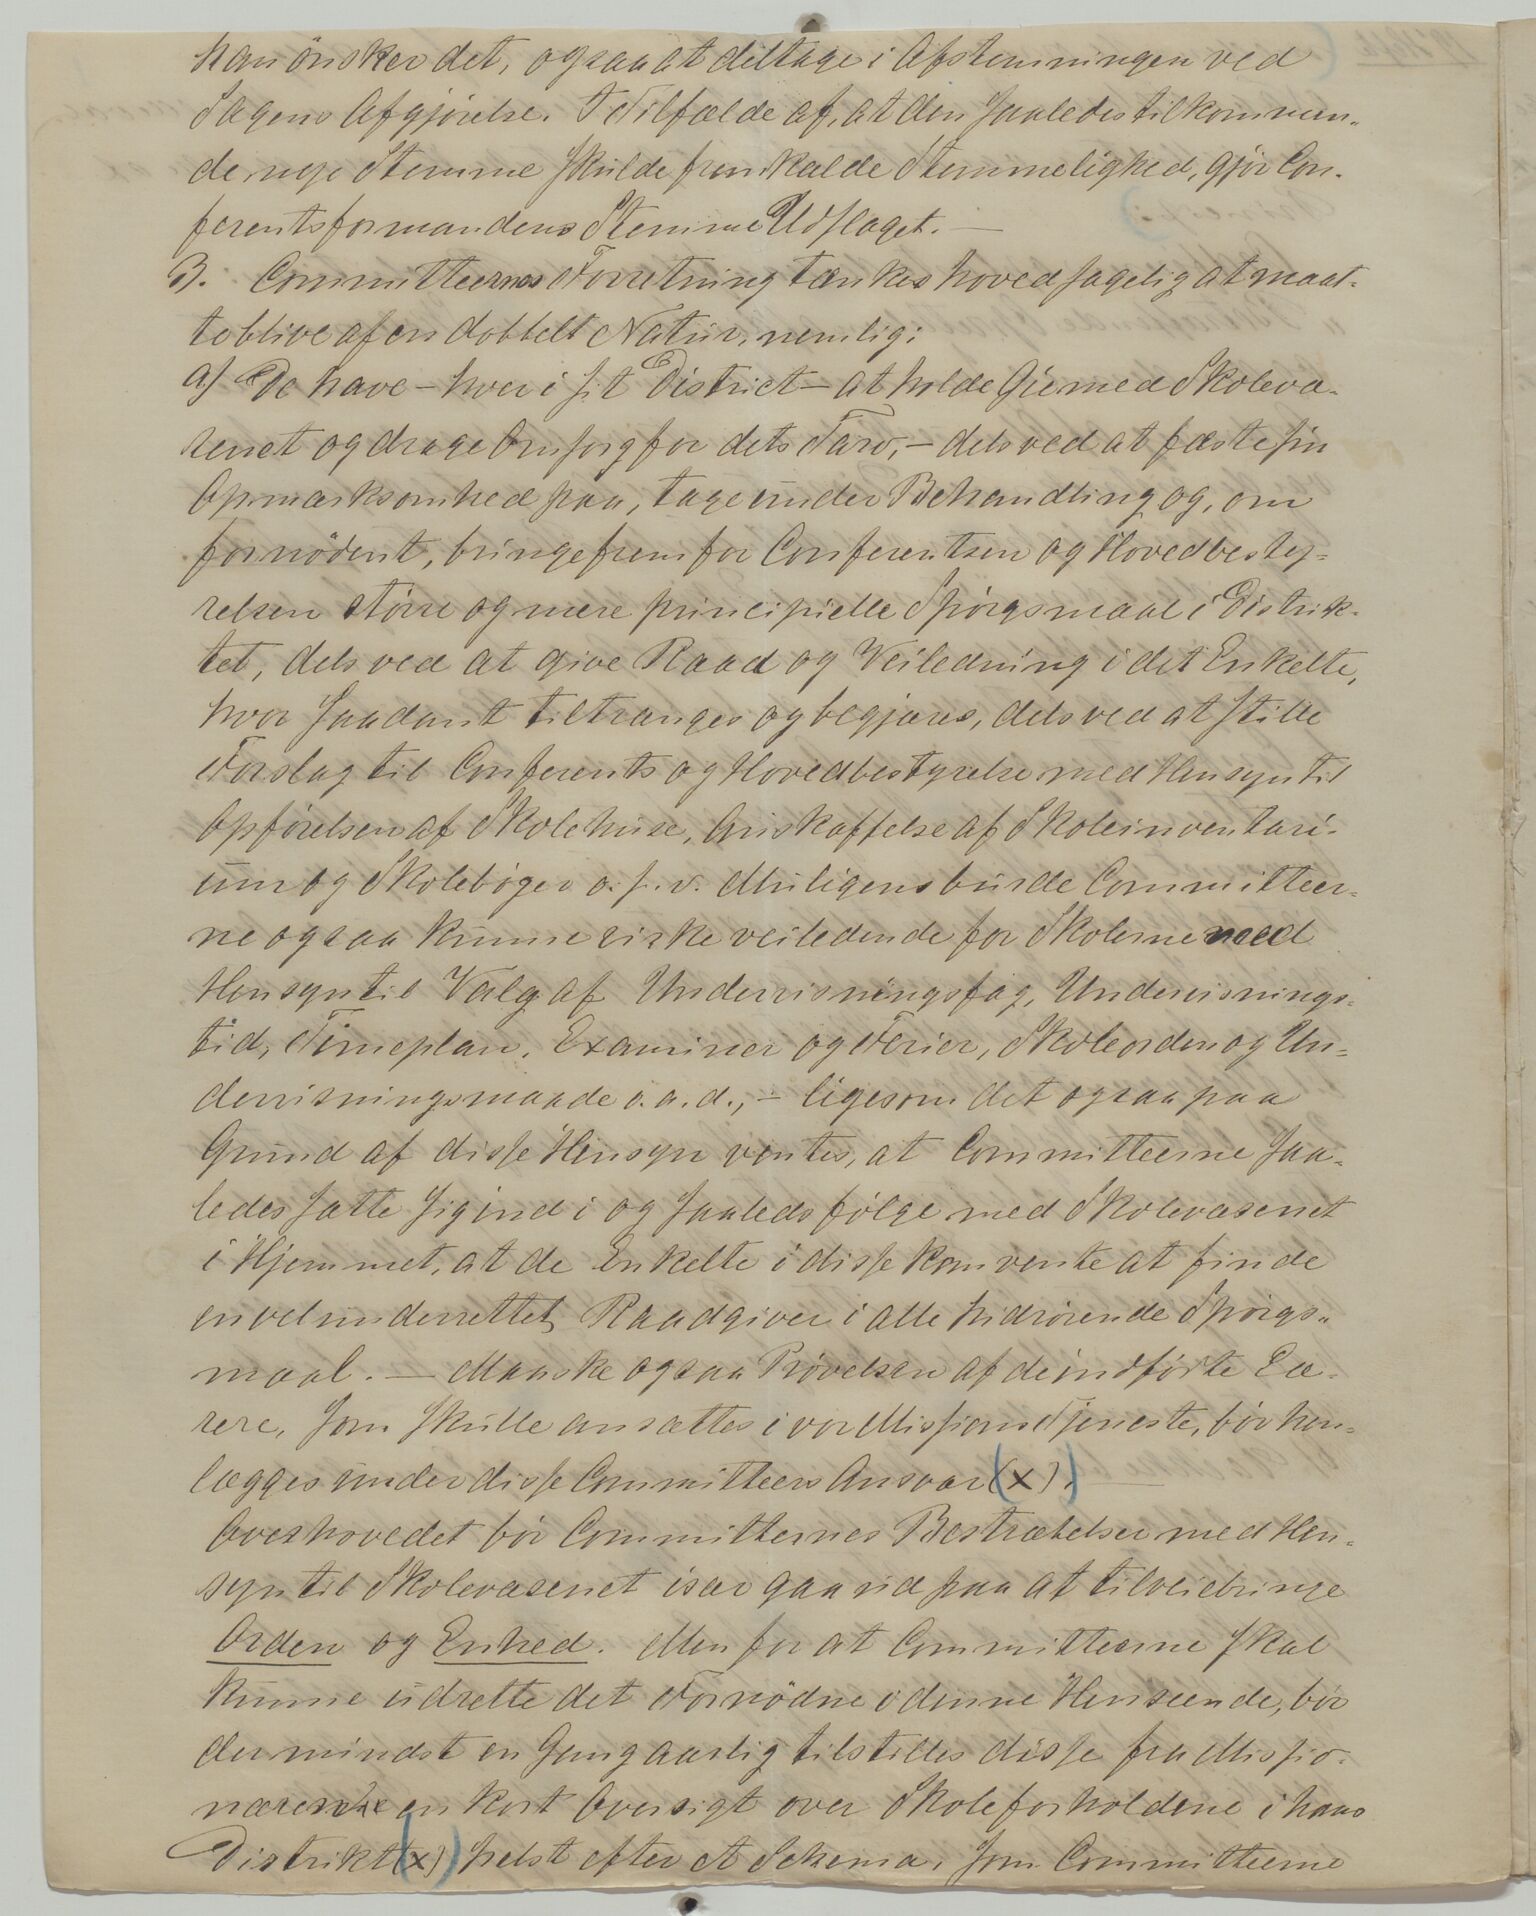 han önsker det, ogsaa at deltage i Afstemningen ved
Sagens Afgjörelse. I Tilfælde af, at den saaledes tilkommen-
de nye Stemme skulde fremkalde Stemmelighed, gjör Con-
ferentsformandens Stemme Udslaget. —
3. Committeernes Forretning tænkes hovedsagelig at maat-
te blive af en dobbelt Natur, nemlig:
a) De have – hver i sit District – at holde Öie med Skolevæ-
senet og drage Omsorg for dets Tarv, – dels ved at fæste sin
Opmærksomhed paa, tage under Behandling og, om
fornödent, bringe frem for Conferentsen og Hovedbesty-
relsen större og mere principielle Spörgsmaal i Distrik-
tet, dels ved at give Raad og Veiledning i det Enkelte,
hvor saadant tiltrænges og begjæres, dels ved at stille
Forslag til Conferents og Hovedbestyrelse med Hensyn til
Opförelsen af Skolehuse, Anskaffelse af Skoleinventari-
um og Skoleböger o. s. v. Muligens burde Committeer-
ne ogsaa kunne virke veiledende for Skolerne med
Hensyn til Valg af Undervisningsfag, Undervisnings-
tid, Timeplan, Examiner og Ferier, Skoleorden og Un-
dervisningsmaade o. a. d., – ligesom det ogsaa paa
Grund af disse Hensyn ventes, at Committeerne saa-
ledes sætte sig ind i og saaleds fölge med Skolevæsenet
i Hjemmet, at de Enkelte i disse kan vente at finde
en velunderrettet Raadgiver i alle hidrörende Spörgs-
maal. — Maaske ogsaa Prövelsen af de indförte Læ-
rere, som skulle ansættes i vor Missions Tjeneste, bör hen-
lægges under disse Committeers Ansvar (x). —
Overhovedet bör Committernes Bestræbelser med Hen-
syn til Skolevæsenet især gaa ud paa at tilveiebringe
Orden og Enhed. Men for at Committeerne skal
kunne udrette det Fornödne i denne Henseende, bör
der mindst en Gang aarlig tilstilles disse fra Missio-
næren en kort Oversigt over Skoleforholdene i hans
Distrikt (x) helst efter et Schema, som Committeerne